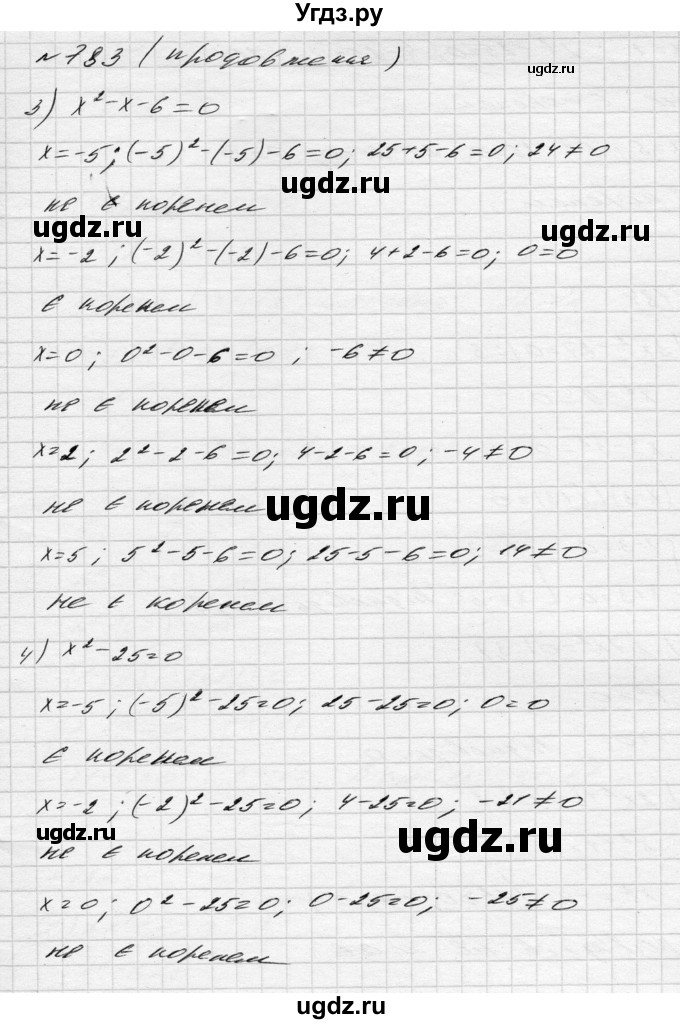 Угдз.ру
№ 783 (продовження)
ugdz.ru
3) x² - x - 6 = 0
x = -5; (-5)² - (-5) - 6 = 0; 25 + 5 - 6 = 0; 24 ≠ 0
ugdz.ru
не є коренем
ugdz.ru
ugdz.ru
x = -2; (-2)² - (-2) - 6 = 0; 4 + 2 - 6 = 0; 0 = 0
є коренем
x = 0; 0² - 0 - 6 = 0; -6 ≠ 0
не є коренем
x = 2; 2² - 2 - 6 = 0; 4 - 2 - 6 = 0; -4 ≠ 0
не є коренем
ugdz.ru
x = 5; 5² - 5 - 6 = 0; 25 - 5 - 6 = 0; 14 ≠ 0
не є коренем
4) x² - 25 = 0
x = -5; (-5)² - 25 = 0; 25 - 25 = 0; 0 = 0
є коренем
x = -2; (-2)² - 25 = 0; 4 - 25 = 0; -21 ≠ 0
ugdz.ru
ugdz.ru
не є коренем
x = 0; 0² - 25 = 0; 0 - 25 = 0; -25 ≠ 0
не є коренем
ugdz.ru